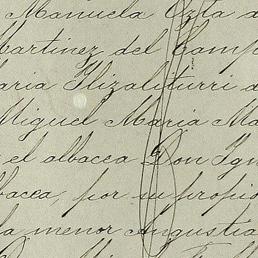 Manuela Ozta d
Martinez del Camp
aria Elizaliturri d
Miguel Maria Ma
el albacea Don Ign
bacea, por su propio
la menor Angustia